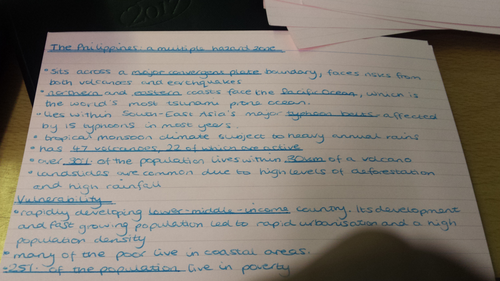 2012
The Philippines: a multiple hazard zone
• Sits across a major convergent plate boundary, faces risks from
both volcanoes and earthquakes
• northern and eastern coasts face the Pacific Ocean, which is
the world's most tsunami prone ocean.
• lies within South-East Asia's major typhoon belt. affected
by 15 typhoons in most years.
• tropical monsoon climate subject to heavy annual rains
• has 47 volcanoes, 22 of which are active
• over 30% of the population lives within 30km of a volcano
• landslides are common due to high levels of deforestation
and high rainfall
Vulnerability
• rapidly developing lower-middle-income country. Its development
and fast growing population led to rapid urbanisation and a high
population density
• many of the poor live in coastal areas.
• 25% of the population live in poverty